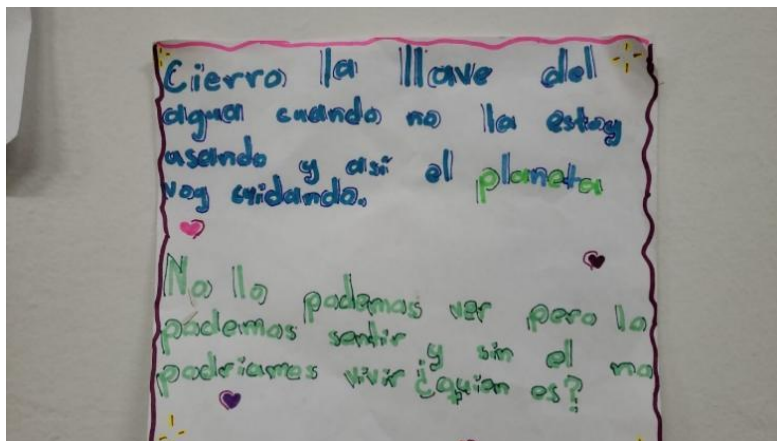 Cierro la llave del
agua cuando no la estoy
usando y así el planeta
voy cuidando.
No lo podemos ver pero lo
podemos sentir y sin el no
podriamos vivir ¿quien es?